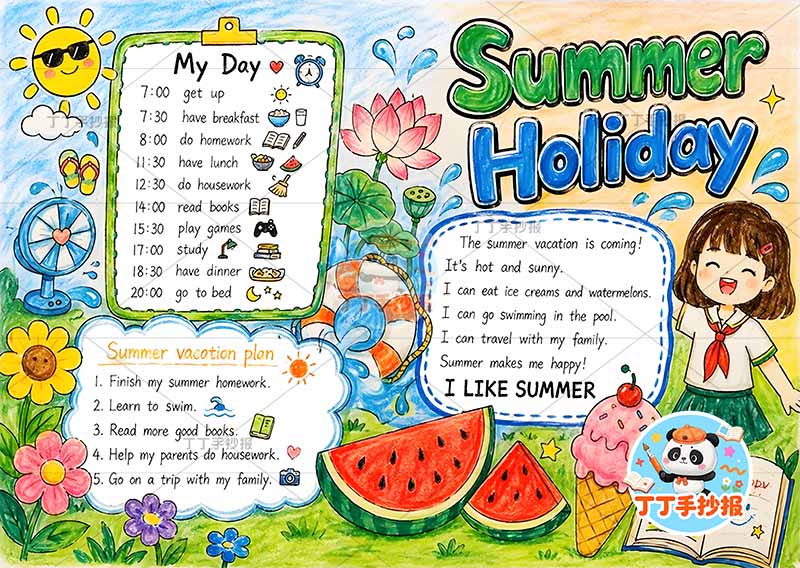 My Day
7:00 get up
7:30 have breakfast
8:00 do homework
11:30 have lunch
12:30 do housework
14:00 read books
15:30 play games
17:00 study
18:30 have dinner
20:00 go to bed
Summer
Holiday
The summer vacation is coming!
It's hot and sunny.
I can eat ice creams and watermelons.
I can go swimming in the pool.
I can travel with my family.
Summer makes me happy!
I LIKE SUMMER
Summer vacation plan
1. Finish my summer homework.
2. Learn to swim.
3. Read more good books.
4. Help my parents do housework.
5. Go on a trip with my family.
丁丁手抄报
丁丁手抄报
丁丁手抄报
丁丁手抄报